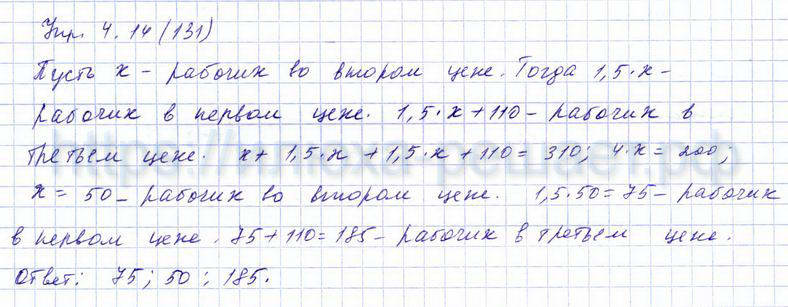 Упр. 4.14 (131)
Пусть x - рабочих во втором цехе. Тогда 1,5·x -
рабочих в первом цехе. 1,5·x + 110 - рабочих в
третьем цехе. x + 1,5·x + 1,5·x + 110 = 310; 4·x = 200;
x = 50 - рабочих во втором цехе. 1,5·50 = 75 - рабочих
в первом цехе. 75 + 110 = 185 - рабочих в третьем цехе.
Ответ: 75; 50; 185.